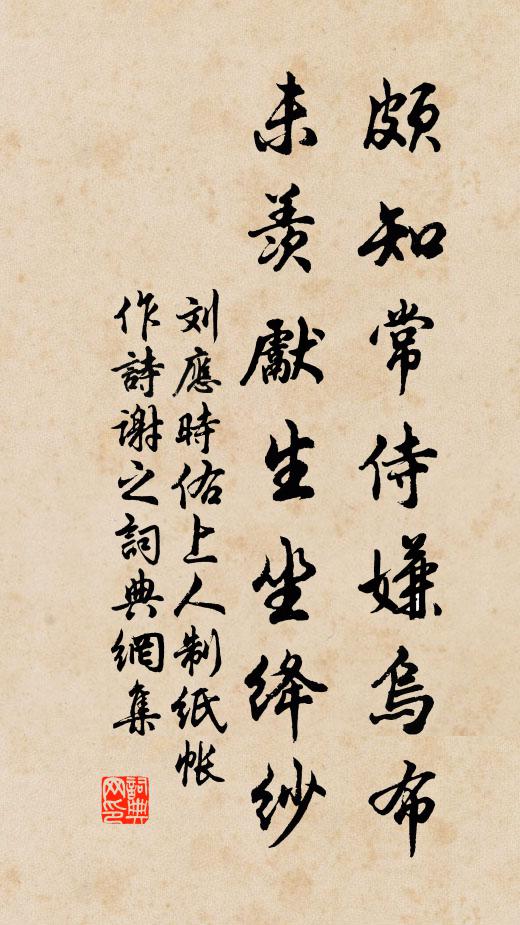 頗知常侍嫌烏布
未羨獻生坐絳紗
刘應時佑上人制紙帳
作詩謝之詞典網集
詞典网印